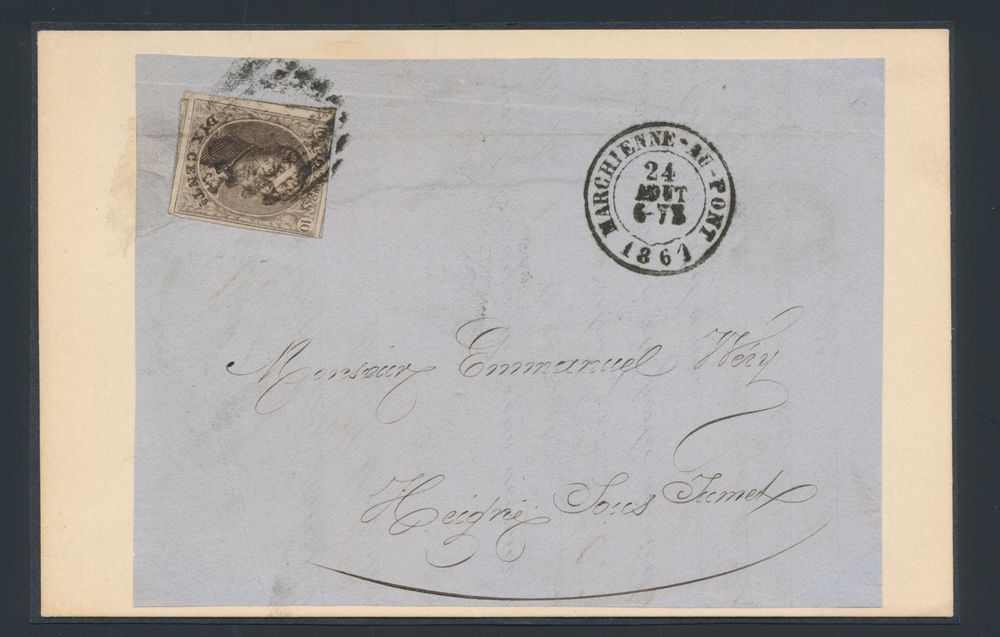 DIX CENTS
10
MARCHIENNE-AU-PONT
24
AOUT
6-7S
1861
Monsieur Emmanuel Wéry
Heigne Sous Jumet